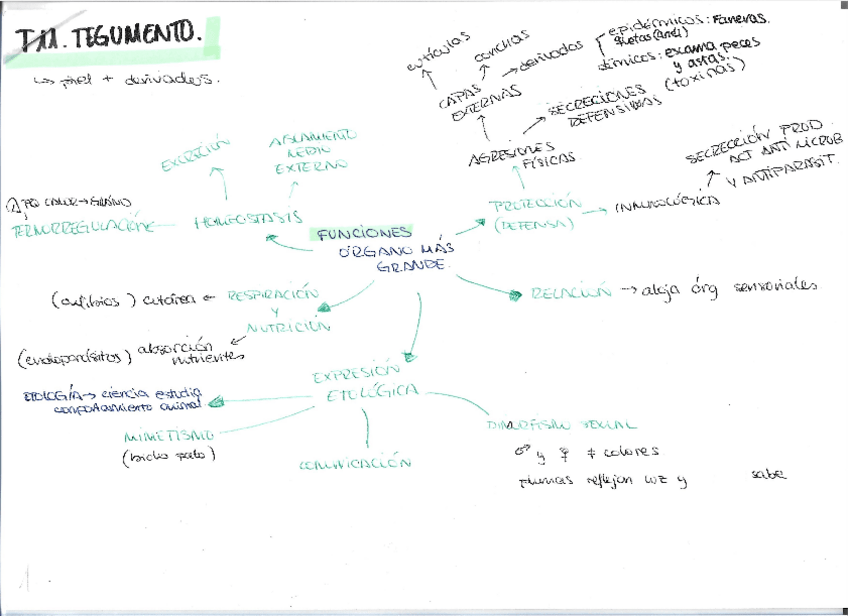 T.11. TEGUMENTO.
↳ piel + derivados.
cutículas
conchas
CAPAS EXTERNAS
→ derivados
epidérmicos: Faneras.
dérmicos: escama peces
y astas.
AGRESIONES
FÍSICAS
SECRECIONES
DEFENSIVAS
(toxinas)
PROTECCIÓN
(DEFENSA)
→ INMUNOLÓGICA
SECRECCIÓN PROD
ACT ANTI MICROB
Y ANTIPARASIT.
EXCRECIÓN
AISLAMIENTO
MEDIO
EXTERNO
HOMEOSTASIS
TERMORREGULACIÓN
FUNCIONES
ÓRGANO MÁS
GRANDE.
RELACIÓN → aloja órg sensoriales
(anfibios) cutánea ← RESPIRACIÓN
Y
NUTRICIÓN
(endoparásitos) absorción
nutrientes
EXPRESIÓN
ETOLÓGICA
ETOLOGÍA → ciencia estudia
comportamiento animal
MIMETISMO
(bicho palo)
COMUNICACIÓN
DIMORFISMO SEXUAL
♂ y ♀ ≠ colores
plumas reflejan luz y sabe